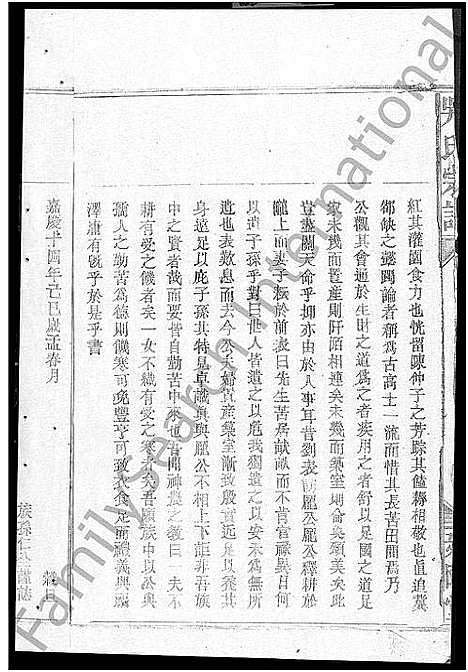 吳氏宗譜
紅其灌園食力也恍留陳仲子之芳踪其饁耨相敬也眞追冀
郤缺之懿躅論者稱為古高士一流而惜其長苦田間焉乃
公觀其會通於生財之道為之者疾用之者舒以足國之道足
家未幾而置産則阡陌相連矣未幾而築室則侖奐頌美矣此
豈盡關天命乎抑亦由於人事耳昔劉表嘗羆公羆公釋耕於
隴上而妻子耘於前表曰先生苦居畎畝而不肯官祿異日何
以遺子孫乎對曰世人皆遺之以危我獨遺之以安未為無所
遺也表歎息而去今公夫婦貲産築室漸致殷富
身遠足以庇子孫其特見卓識眞與羆公不相上下詎非吾族
中之賢者哉而要皆自勤苦中來也吾聞神農之教曰一夫不
耕有受之饑者矣一女不織有受之寒者矣吾願族中以公與
孺人之勤苦為德則饑寒可免豐亨可致衣食足而禮義興厥
澤庸有旣乎於是乎書
嘉慶十四年己巳歲孟春月
族孫 謹誌
FamilySearch International